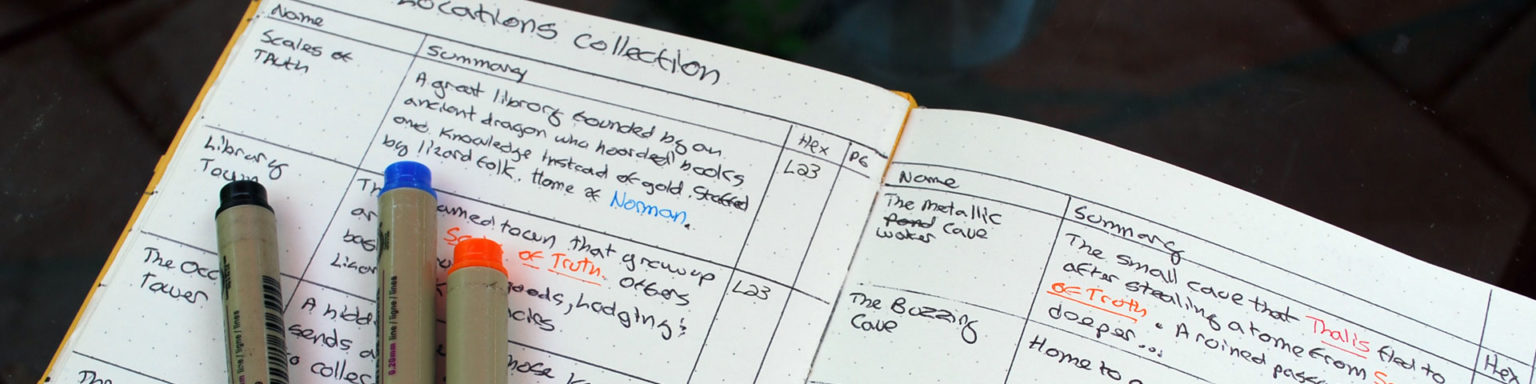 Locations collection
Name
Summary
Hex
PG
Scales of
Truth
A great library founded by an
ancient dragon who hoarded books
and knowledge instead of gold. Staffed
by lizard folk. Home of Norman.
L23
Library
Town
named town that grew up
of Truth. Others
goods, lodging &
L23
The Occ
Tower
A hidd
sends a
to collec
whose
The
Name
Summary
Hex
The Metallic
Pond Cave
water
The small cave that Thalis fled to
after stealing a tome from S
of Truth. A ruined pass
deeper...
The Buzzing
Cave
Home to a
0.20mm line/ligne/lines
line/ligne/lines